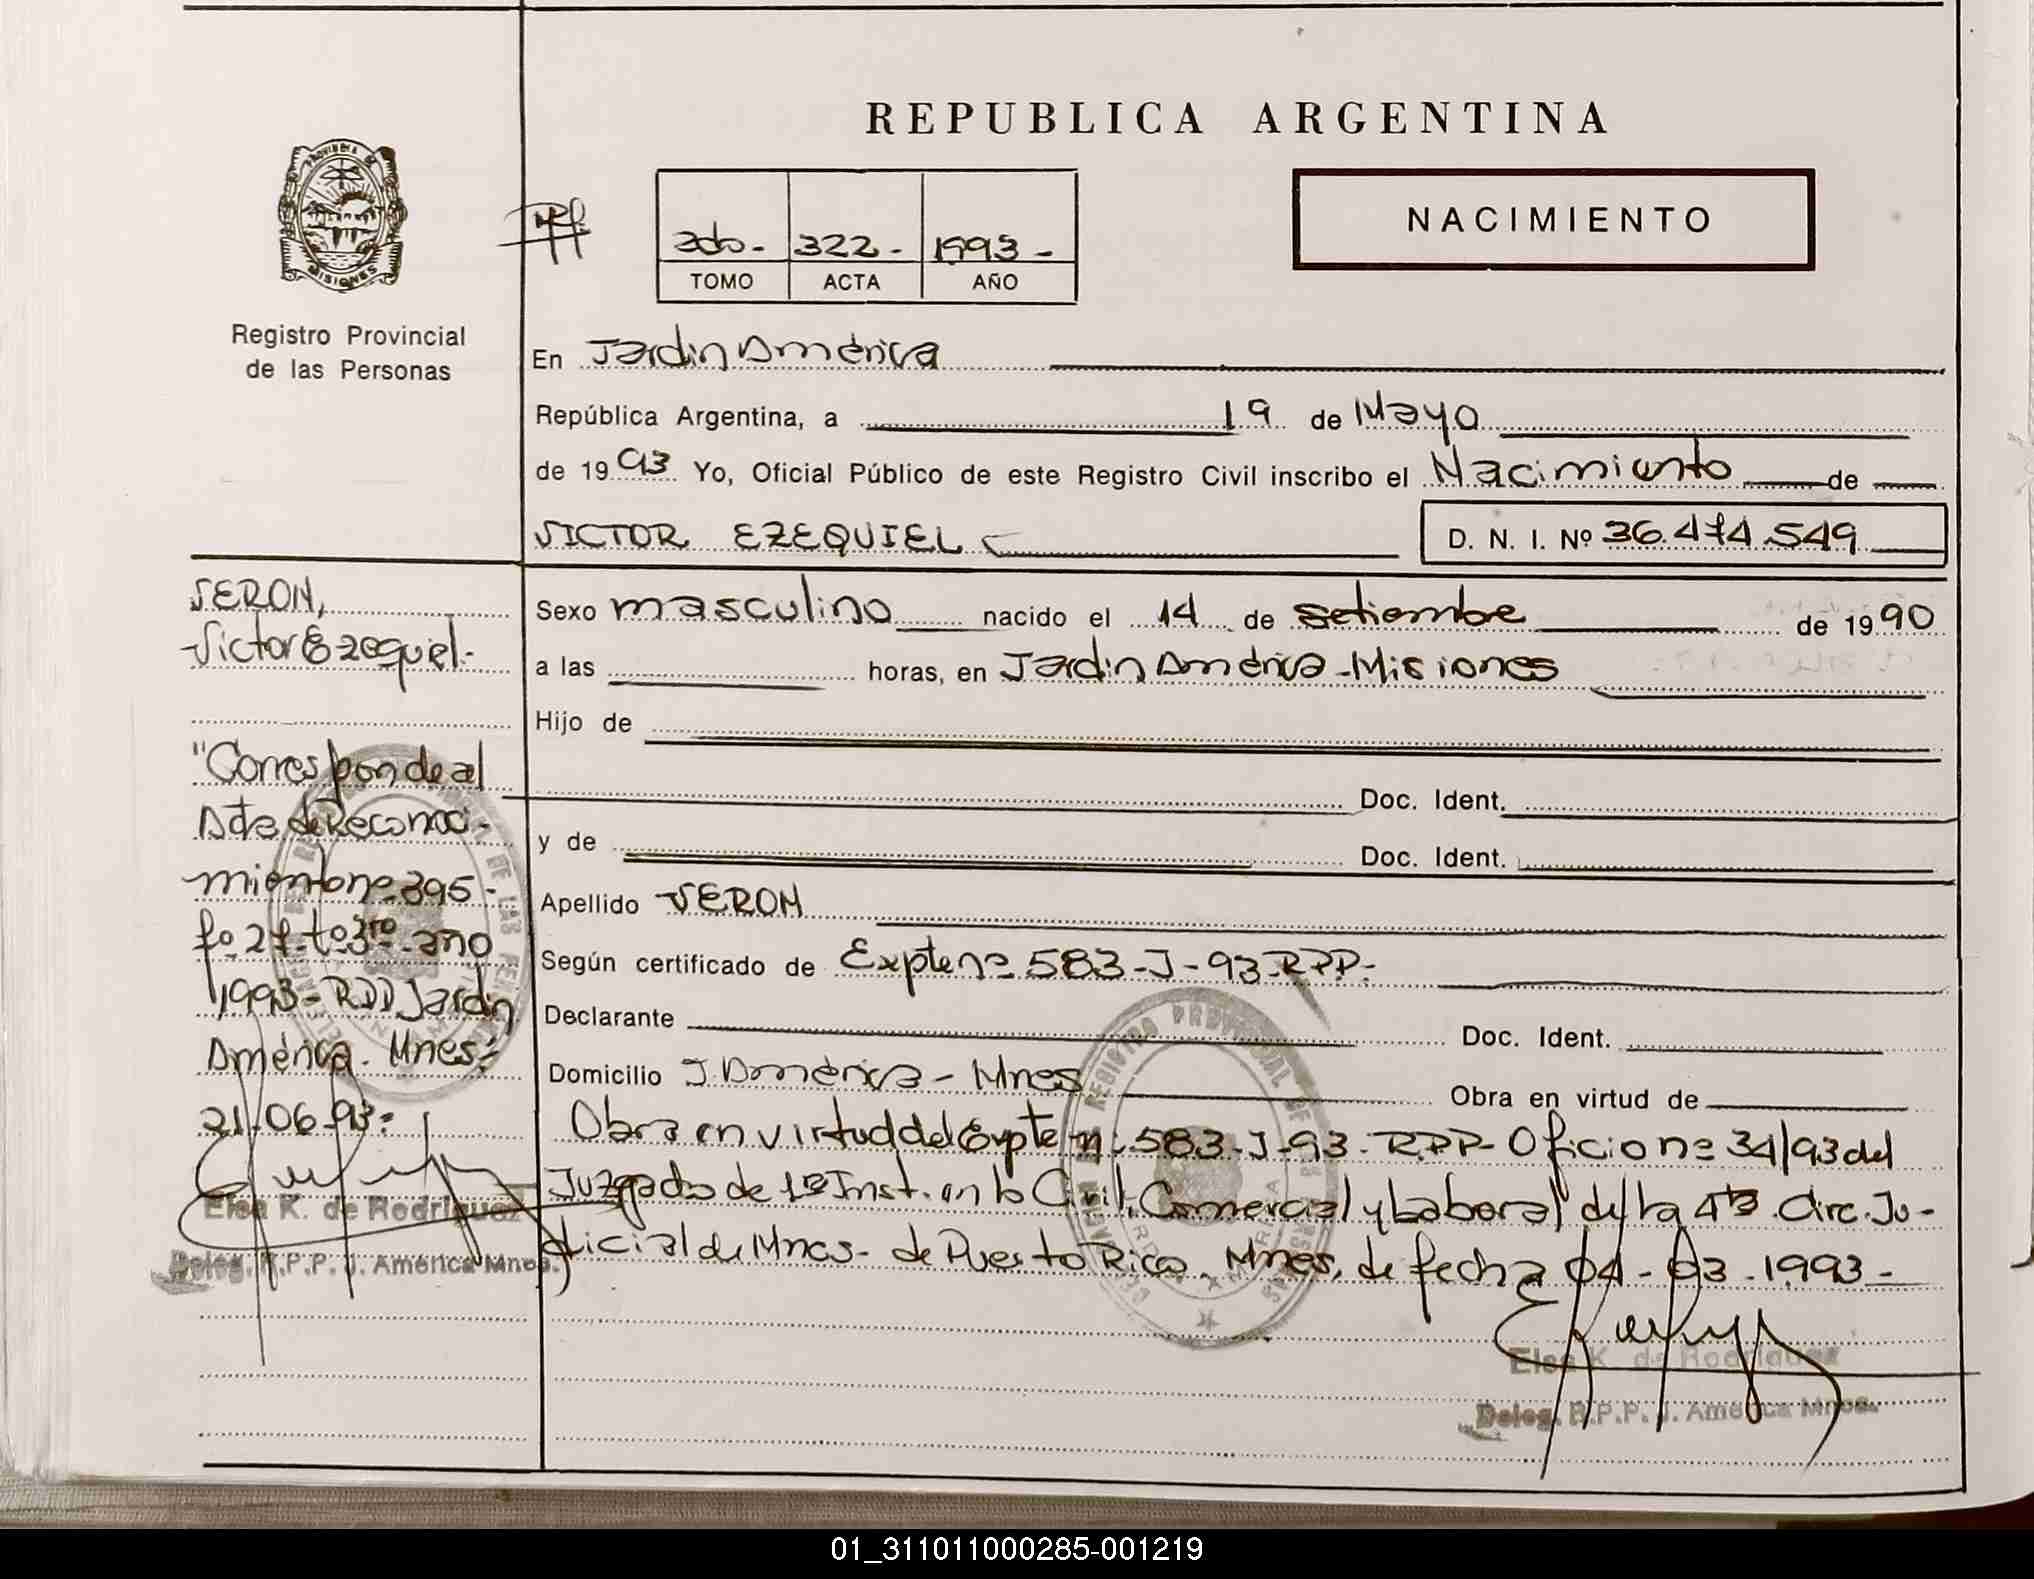 REPUBLICA ARGENTINA
PROVINCIA DE
MISIONES
2do- 322- 1993-
TOMO ACTA AÑO
NACIMIENTO
Registro Provincial
de las Personas
En Jardin América
República Argentina, a 19 de Mayo
de 1993 Yo, Oficial Público de este Registro Civil inscribo el Nacimiento de
VICTOR EZEQUIEL D. N. I. Nº 36.474.549
Sexo masculino nacido el 14 de setiembre de 1990
a las horas, en Jardin América-Misiones
Hijo de
Doc. Ident.
y de Doc. Ident.
Apellido VERON
Según certificado de Expte nº 583-J-93-RPP-
Declarante Doc. Ident.
Domicilio J. América - Mnes Obra en virtud de
Obra en virtud del Expte nº 583-J-93-RPP- Oficio nº 34/93 del
Juzgado de 1º Inst. en lo Civil, Comercial y Laboral de la 4ta Circ. Ju-
dicial de Mnes- de Puerto Rico, Mnes, de fecha 04-03-1993-
Elsa K. de Rodriguez
Deleg. R.P.P. J. América Mnes.
VERON,
Victor Ezequiel.-
"Corresponde al
Acta de Reconoci-
miento nº 395-
fº 27-tº 3ro-año
1993-RPP Jardin
América. Mnes-
21-06-93-
Elsa K. de Rodriguez
Deleg. R.P.P. J. América Mnes.
01_311011000285-001219